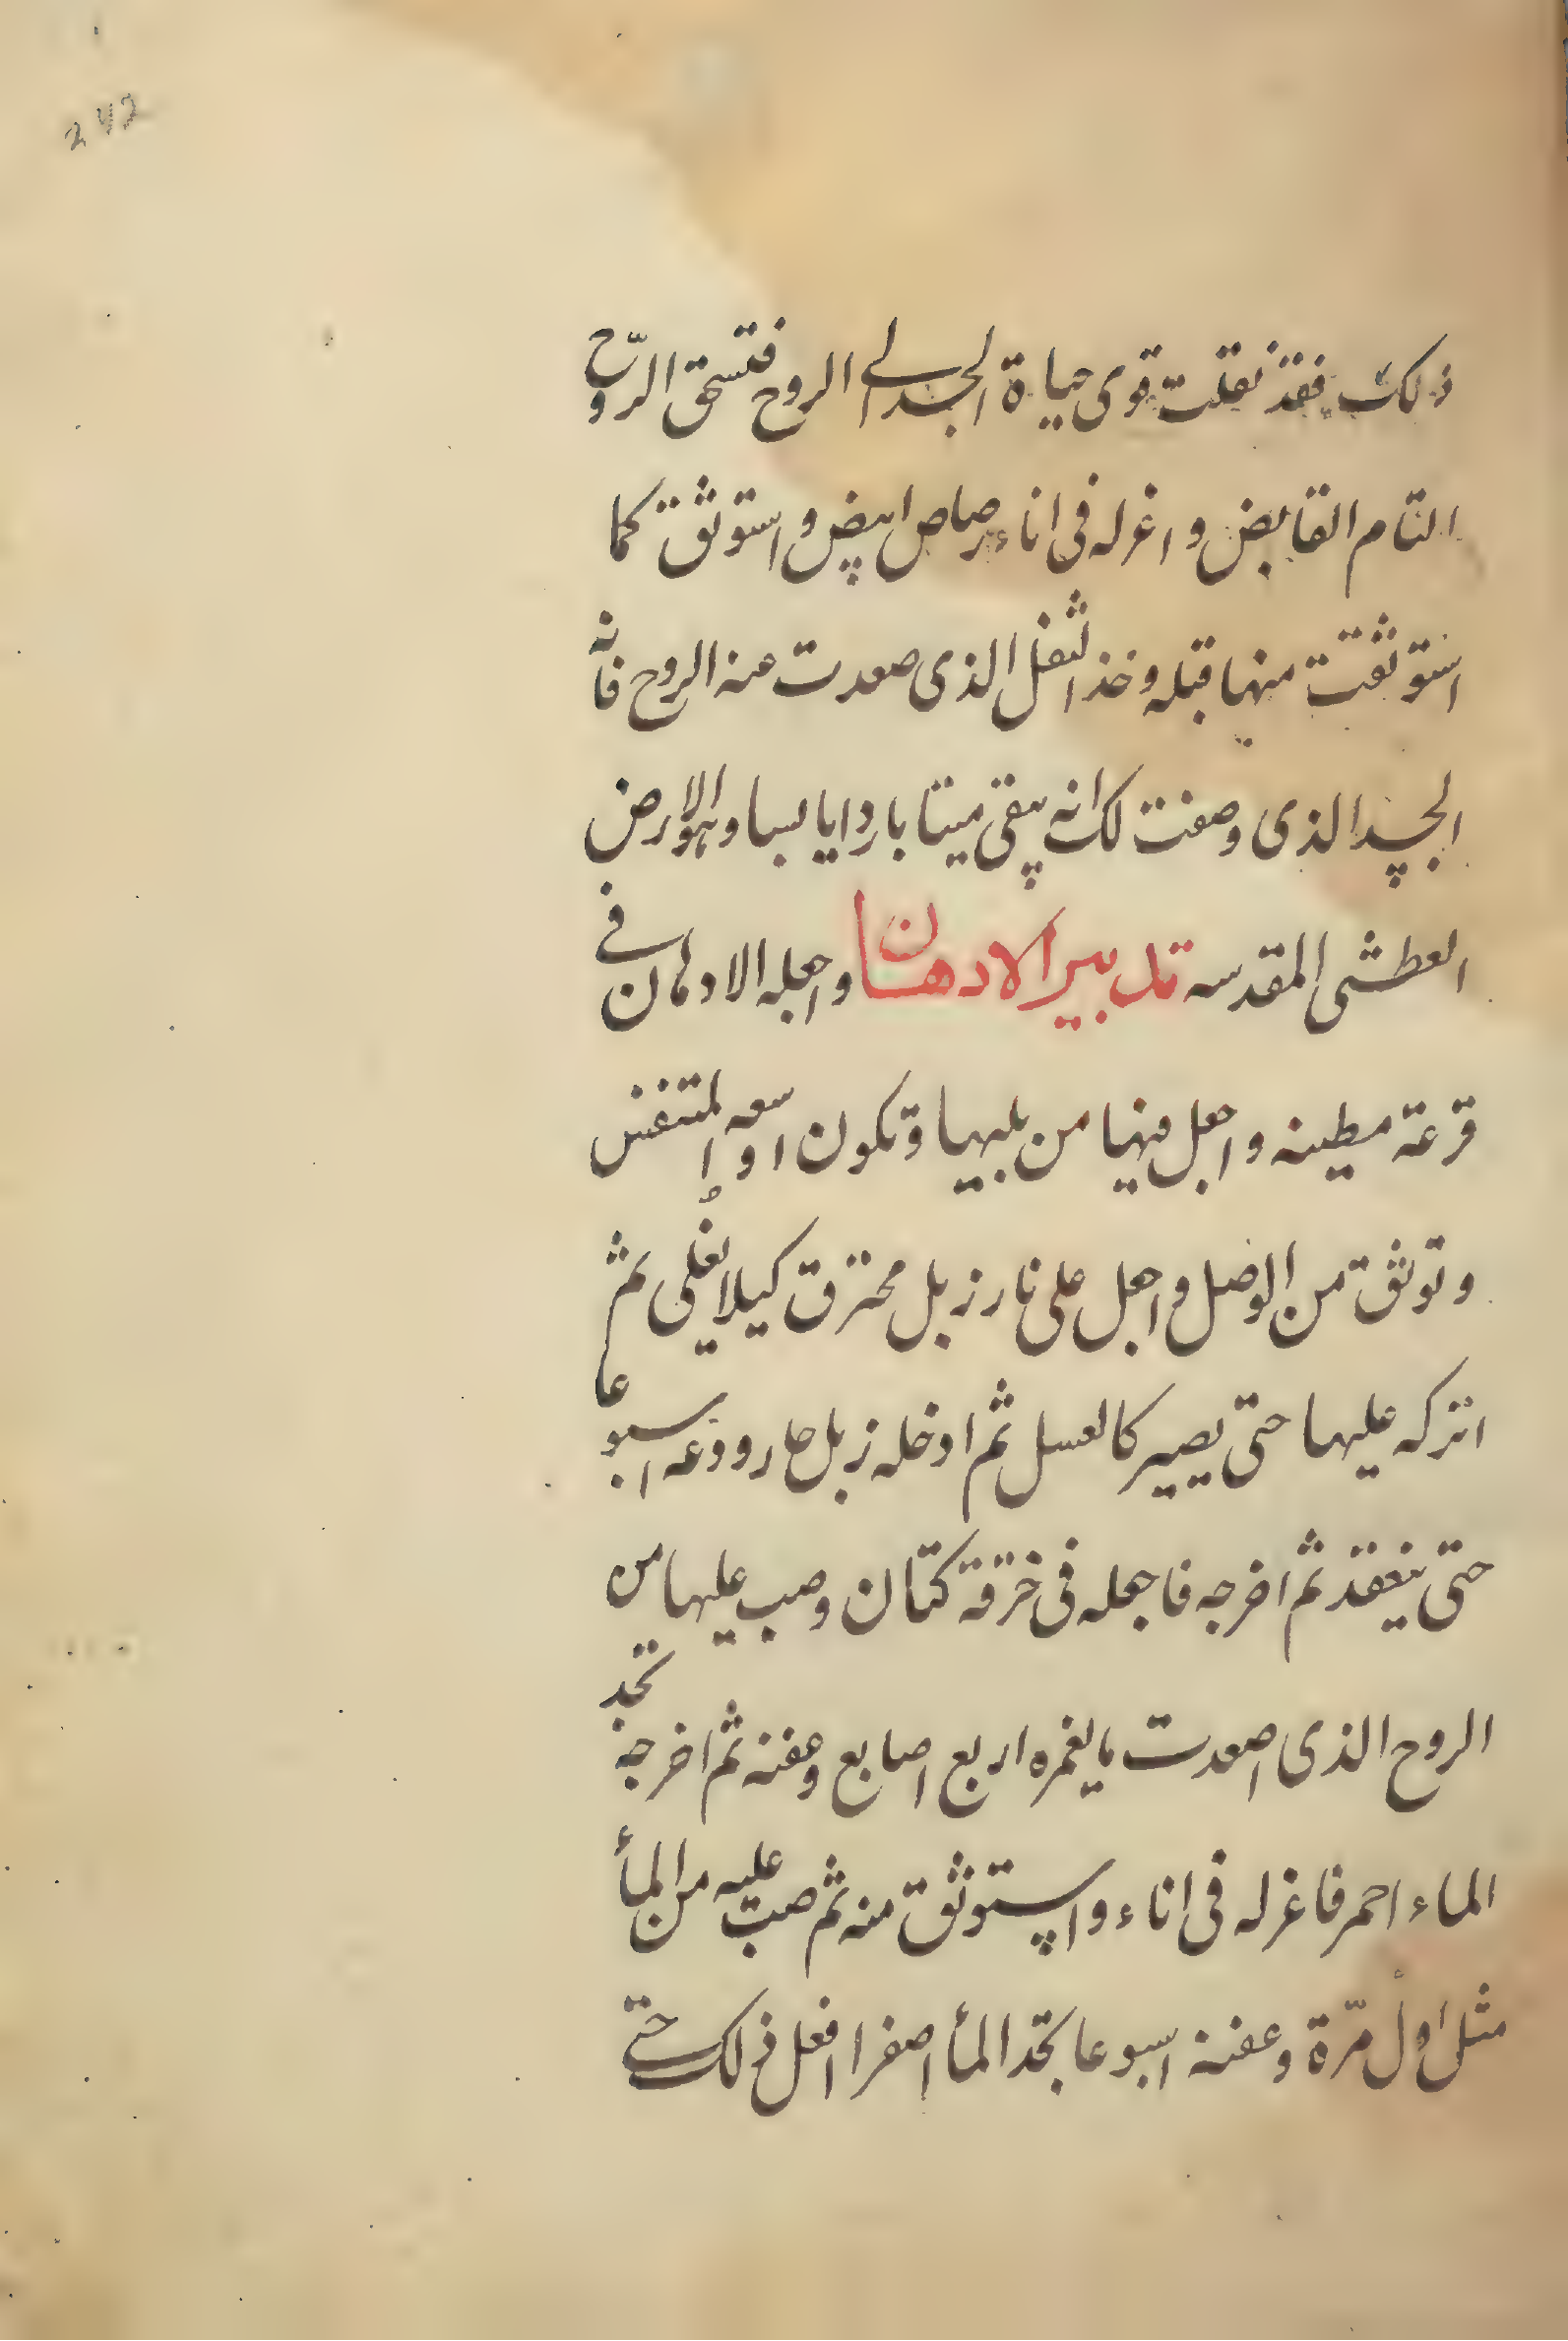 242
ذلك فقد نقلت قوى حياة الجسد الى الروح فتسحق الروح
التام القابض واغرله فى اناء رصاص ابيض واستوثق كما
استوثقت منها قبله وخذ الثفل الذى صعدت عنه الروح فانه
الجسد الذى وصفت لك انه يبقى ميتا باردا يابسا وهو الارض
العطشى المقدسه تدبير الادهان واجعله الادهان فى
قرعة مطينه واجعل فيها من يليها وتكون اوسعه المتنفس
وتوثق من الوصل واجعل على نار زبل محترق كيلا يغلى ثم
اتركه عليها حتى يصير كالعسل ثم ادخله زبل حار ودعه اسبوعا
حتى ينعقد ثم اخرجه فاجعله فى خرقة كتان وصب عليها من
الروح الذى اصعدت ما يغمره اربع اصابع وعفنه ثم اخرجه تجد
الماء احمر فاغرله فى اناء واستوثق منه ثم صب عليه من المأ
مثل اول مرّة وعفنه اسبوعا تجد المأ اصفرا افعل ذلك حتى